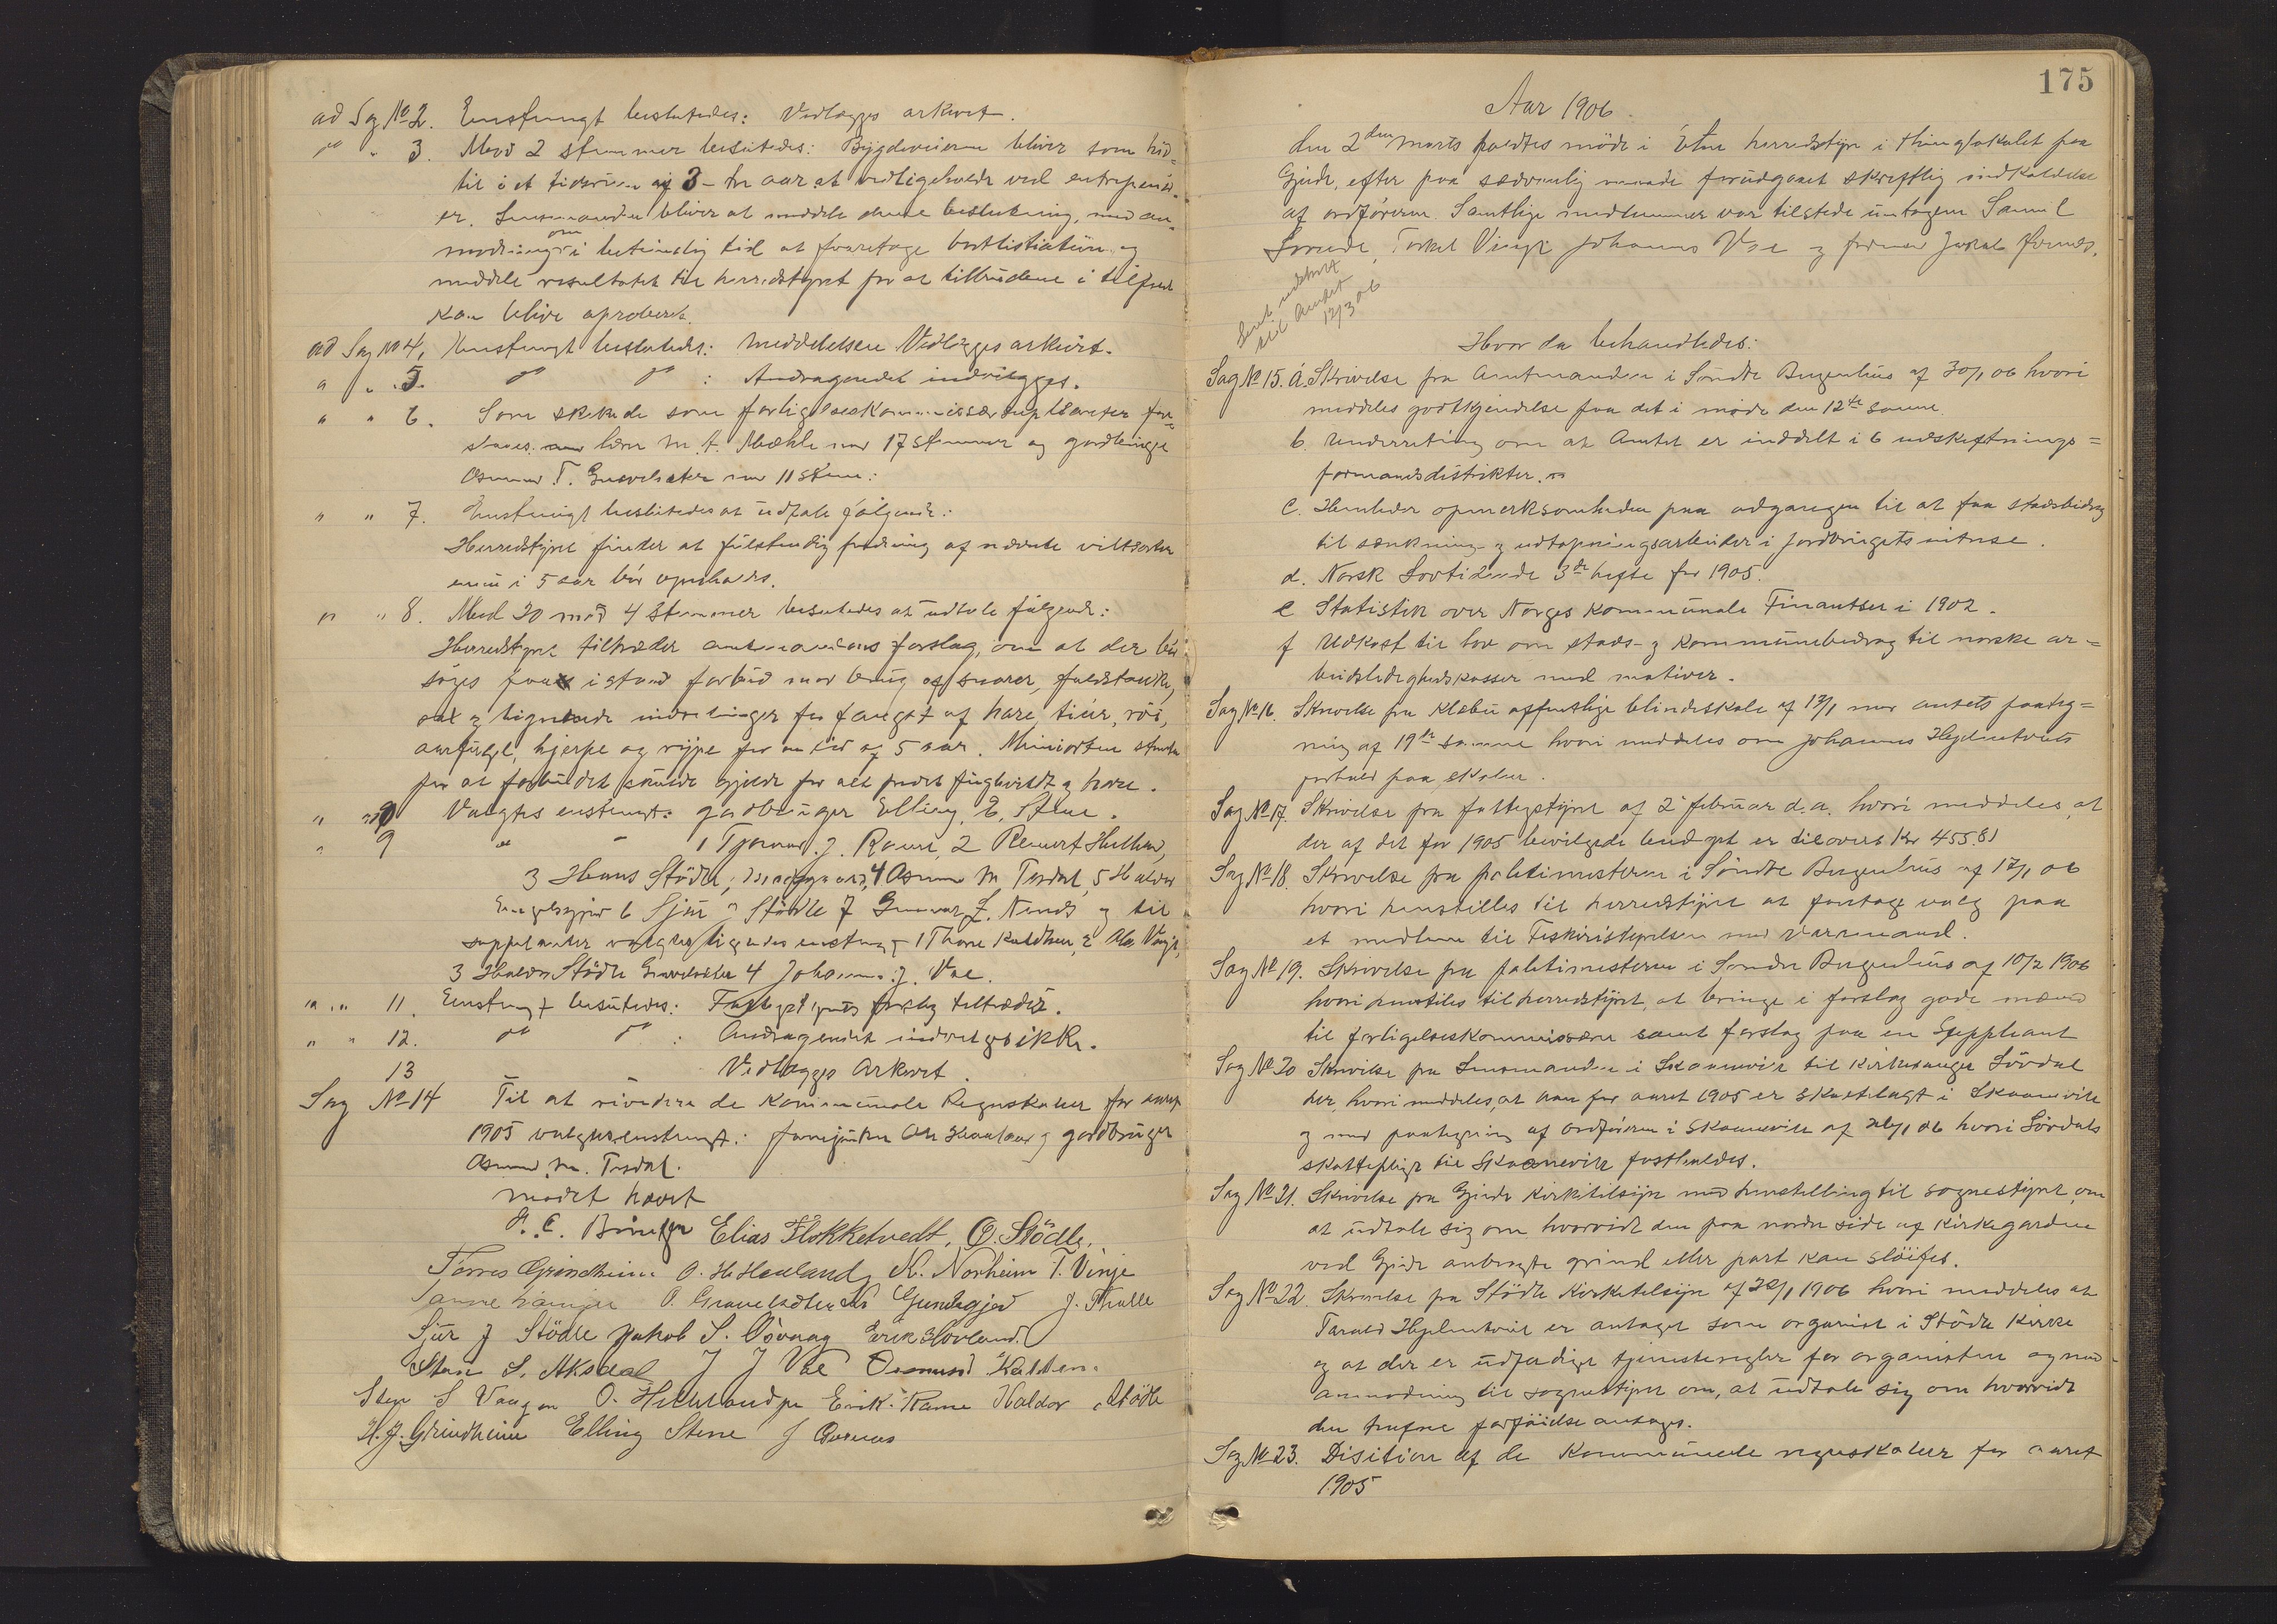 ad Sag No 2. Enstemmigt besluttedes: Vedlægges arkivet.
" " 3. Mod 2 stemmer besluttedes: Bygdeveiene bliver som hid=
til i et tidsrum af 3 - tre aar at vedligeholde ved entreprenør=
er. Lensmanden bliver at meddele denne beslutning, med an=
modning om i betimelig tid at foretage bortlisitation og
meddele resultatet til herredstyret for at tilbudene i tilfælde
kan blive aproberet.
ad Sag No 4. Enstemmigt besluttedes: Meddelelsen Vedlægges arkivet.
" " 5. " " : Andragendet indvilges.
" " 6. Som skikkede som forligelseskommissærsuplanter fore=
slaaes lærer M. A. Mæhle med 17 stemmer og gardbruger
Osmund T. Gravelsæter med 11 stem:
" " 7. Enstemmigt besluttedes at udtale følgende:
Herredstyret finder at fuldstændig fredning af nævnte viltsorter
i 5 aar bør opnaaes.
" " 8. Med 20 mod 4 stemmer besluttedes at udtale følgende:
Herredstyret tiltræder amtmandens forslag, om at der bør
søges faaet istand forbud mod brug af snarer, faldstokke,
og lignende indretninger for fangst af hare, tiur, röi,
aarfugl, hjerpe og rype for en tid af 5 aar. Minioriteten stemte
for at forbuddet skulde gjelde for alt fredet fuglevildt og hare.
" " 9 Valgtes enstemt: gardbruger Elling E. Stene.
" 9 " " 1 Tjerand J. Rame, 2 Reinert
3 Hans Stödle, 4 Osmun M Tesdal, 5 Haldor
6 Sjur J Stödle 7 Gunnar L. Nernes og til
suppelanter valgtes ligeledes enstemt 1 Thore Kaldheim, 2 Ole Vinje,
3 Haldor Stödle 4 Johannes J. Vae.
" " 11. Enstemt besluttedes: Fattigstyrets forslag tiltrædes.
" " 12. " " : Andragendet indvilges ikke.
13 Vedlægges Arkivet.
Sag No 14 Til at revidere de kommunale Regnskaber for aaret
1905 valgtes enstemt: furujunker Ole og gardbruger
Osmund M. Tesdal.
Mødet hævet
Elias Flokketvedt, O. Stödle.
Torres Grindheim O. H. Hauland N. Norheim T. Vinje
O. Gravelsæter J. Tralle
Sjur J Stödle Jakob S. Osvaag Erik Hovland.
Sten S. Aksdal J J Vae Osmund Kaldheim
Sten S Vaagen O. Erik Rame Haldor Stödle
H. J. Grindheim Elling Stene
175
Aar 1906.
den 2den Marts holdtes möde i Etne herredstyre i thinglokalet paa
Gjerde, efter paa sædvanlig maade forudgaaet skriftlig indkaldelse
af ordföreren. Samtlige medlemmer var tilstede undtagen Samuel
Torkel Vinje Johannes Vae og formand Jakob
Sent udskrift
til Amtet
12/3 06
Hvor da behandledes:
Sag No 15. a. Skrivelse fra Amtmanden i Söndre Bergenhus af 30/1 06 hvori
meddeles godtkjendelse paa det i möde den 12te samme.
b. Underretning om at Amtet er inddelt i 6 udskiftnings=
formandsdistrikter.
c. Henleder opmerksomheden paa adgangen til at faa statsbidrag
til sænknings- og udtapningsarbeider i jordbrugets interesse.
d. Norsk Lovtidende 3de hefte for 1905.
e Statistik over Norges kommunale Finantser i 1902.
f Udkast til lov om stats- og kommunebidrag til norske ar=
beidsledighedskasser med motiver.
Sag No 16. Skrivelse fra Klæbu offentlige blindeskole af 13/1 med amtets paateg=
ning af 19de samme hvori meddeles om Johannes Hjelmtveits
forhold paa skolen.
Sag No 17. Skrivelse fra fattigstyret af 2 februar d.a. hvori meddeles, at
der af det for 1905 bevilgede budget er tilovers Kr 455.81
Sag No 18. Skrivelse fra politimesteren i Söndre Bergenhus af 17/1 06
hvori henstilles til herredstyret at foretage valg paa
et medlem til Fiskeristyrelsen med Varamand.
Sag No 19. Skrivelse fra politimesteren i Söndre Bergenhus af 10/2 1906
hvori henstiles til herredstyret, at bringe i forslag gode mænd
til forligelseskommissærer samt forslag paa en Suppleant
Sag No 20 Skrivelse fra Lensmanden i Skaanevik til Kirkesanger Sördal
der, hvori meddeles, at han for aaret 1905 er skattelagt i Skaanevik
og med paategning af Ordföreren i Skaanevik af 26/1 06 hvori Sördals
skattepligt til Skaanevik fastholdes.
Sag No 21. Skrivelse fra Gjerde Kirketilsyn med henstilling til sognestyret, om
at udtale sig om hvorvidt den paa nordre side af Kirkegarden
ved Gjerde anbragte grind eller port kan slöifes.
Sag No 22. Skrivelse fra Stödle Kirketilsyn af 30/1 1906 hvori meddeles at
Tarald Hjelmtveit er antaget som organist i Stödle Kirke
og at der er udferdiget tjenesteregler for organisten og med
anmodning til sognestyret om, at udtale sig om hvorvidt
den trufne forföielse antages.
Sag No 23. Disition af de Kommunale regnskaber for aaret
1905